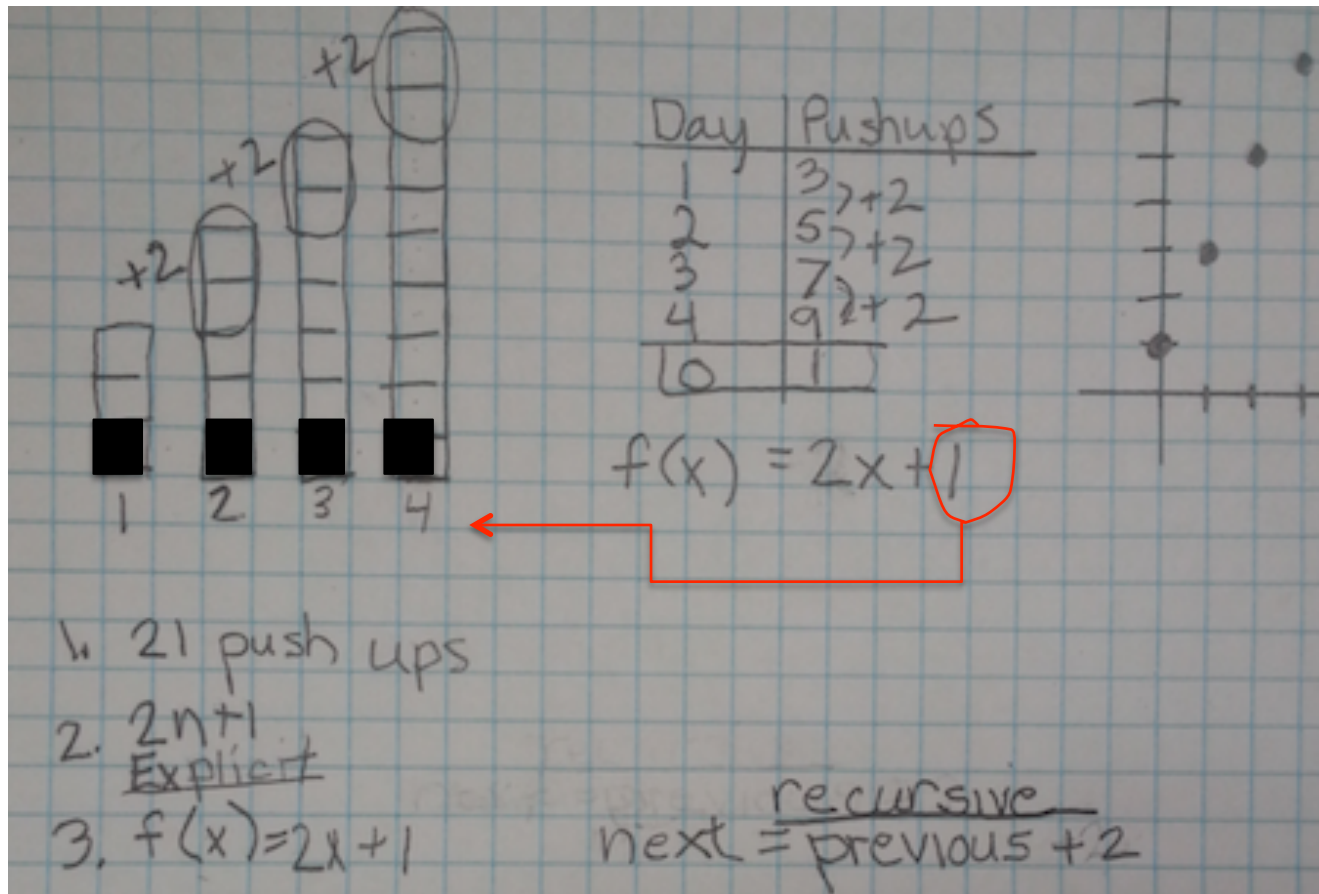 +2
+2
+2
1 2 3 4
Day Pushups
1 3 +2
2 5 +2
3 7 +2
4 9 +2
0 1
f(x) = 2x+1
1. 21 push ups
2. 2n+1
Explicit
3. f(x)=2x+1
recursive
next = previous +2